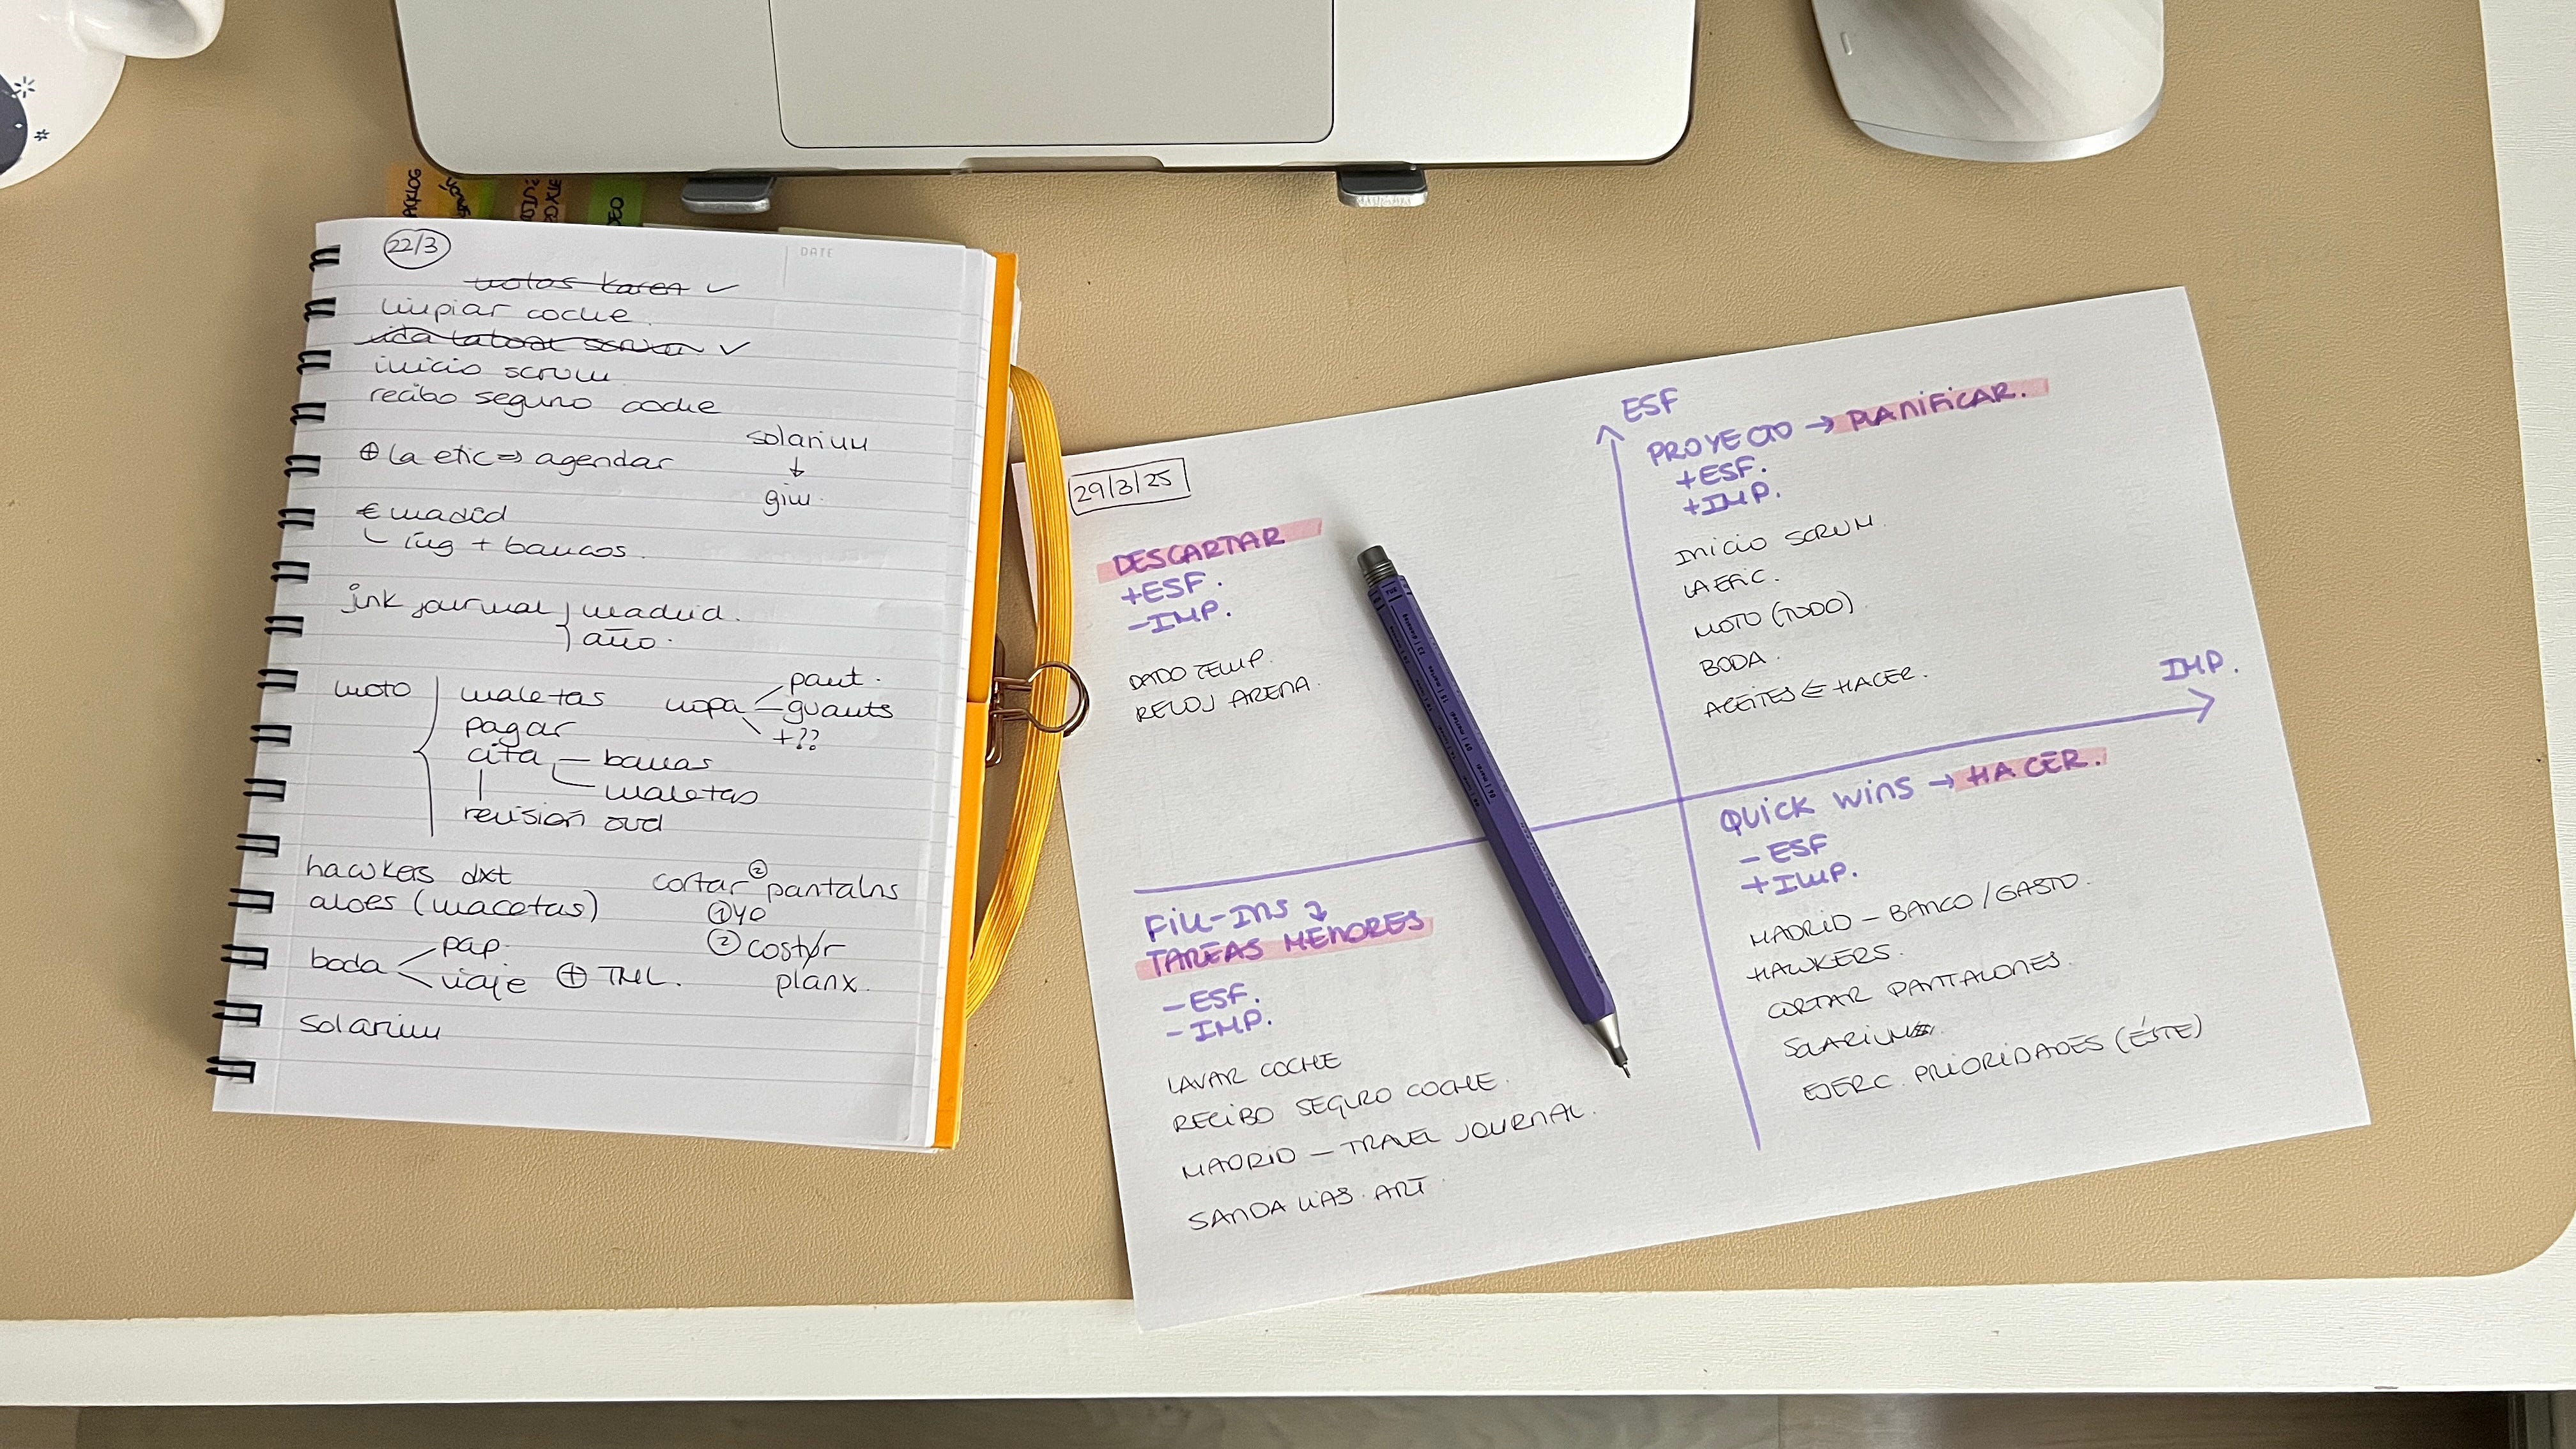 22/3
DATE
notas karen ✓
limpiar coche.
✓
inicio scrum
recibo seguro coche
⊕ la efic => agendar
solarium
↓
gim.
€ madrid
ing + bancos.
junk journal } madrid.
año.
moto
maletas
pagar
cita
barras
maletas
revisión
ropa
pant.
guants
+??
hawkers dxt
aloes (macetas)
cortar ② pantalns
① yo
② costyr
planx.
boda
pap.
viaje ⊕ TML.
solarium
29/3/25
DESCARTAR
+ESF.
-IMP.
DADO TEMP.
RELOJ ARENA.
ESF
PROYECTO → PLANIFICAR.
+ESF.
+IMP.
INICIO SCRUM.
LA EFIC.
MOTO (TODO)
BODA.
ACEITES ⇐ HACER.
IMP.
FILL-INS
TAREAS MENORES
- ESF.
- IMP.
LAVAR COCHE
RECIBO SEGURO COCHE.
MADRID - TRAVEL JOURNAL.
SANDALIAS ART.
QUICK WINS → HACER.
- ESF
+ IMP.
MADRID - BANCO / GASTO.
HAWKERS.
CORTAR PANTALONES.
SOLARIUM
EJERC. PRIORIDADES (ÉSTE)